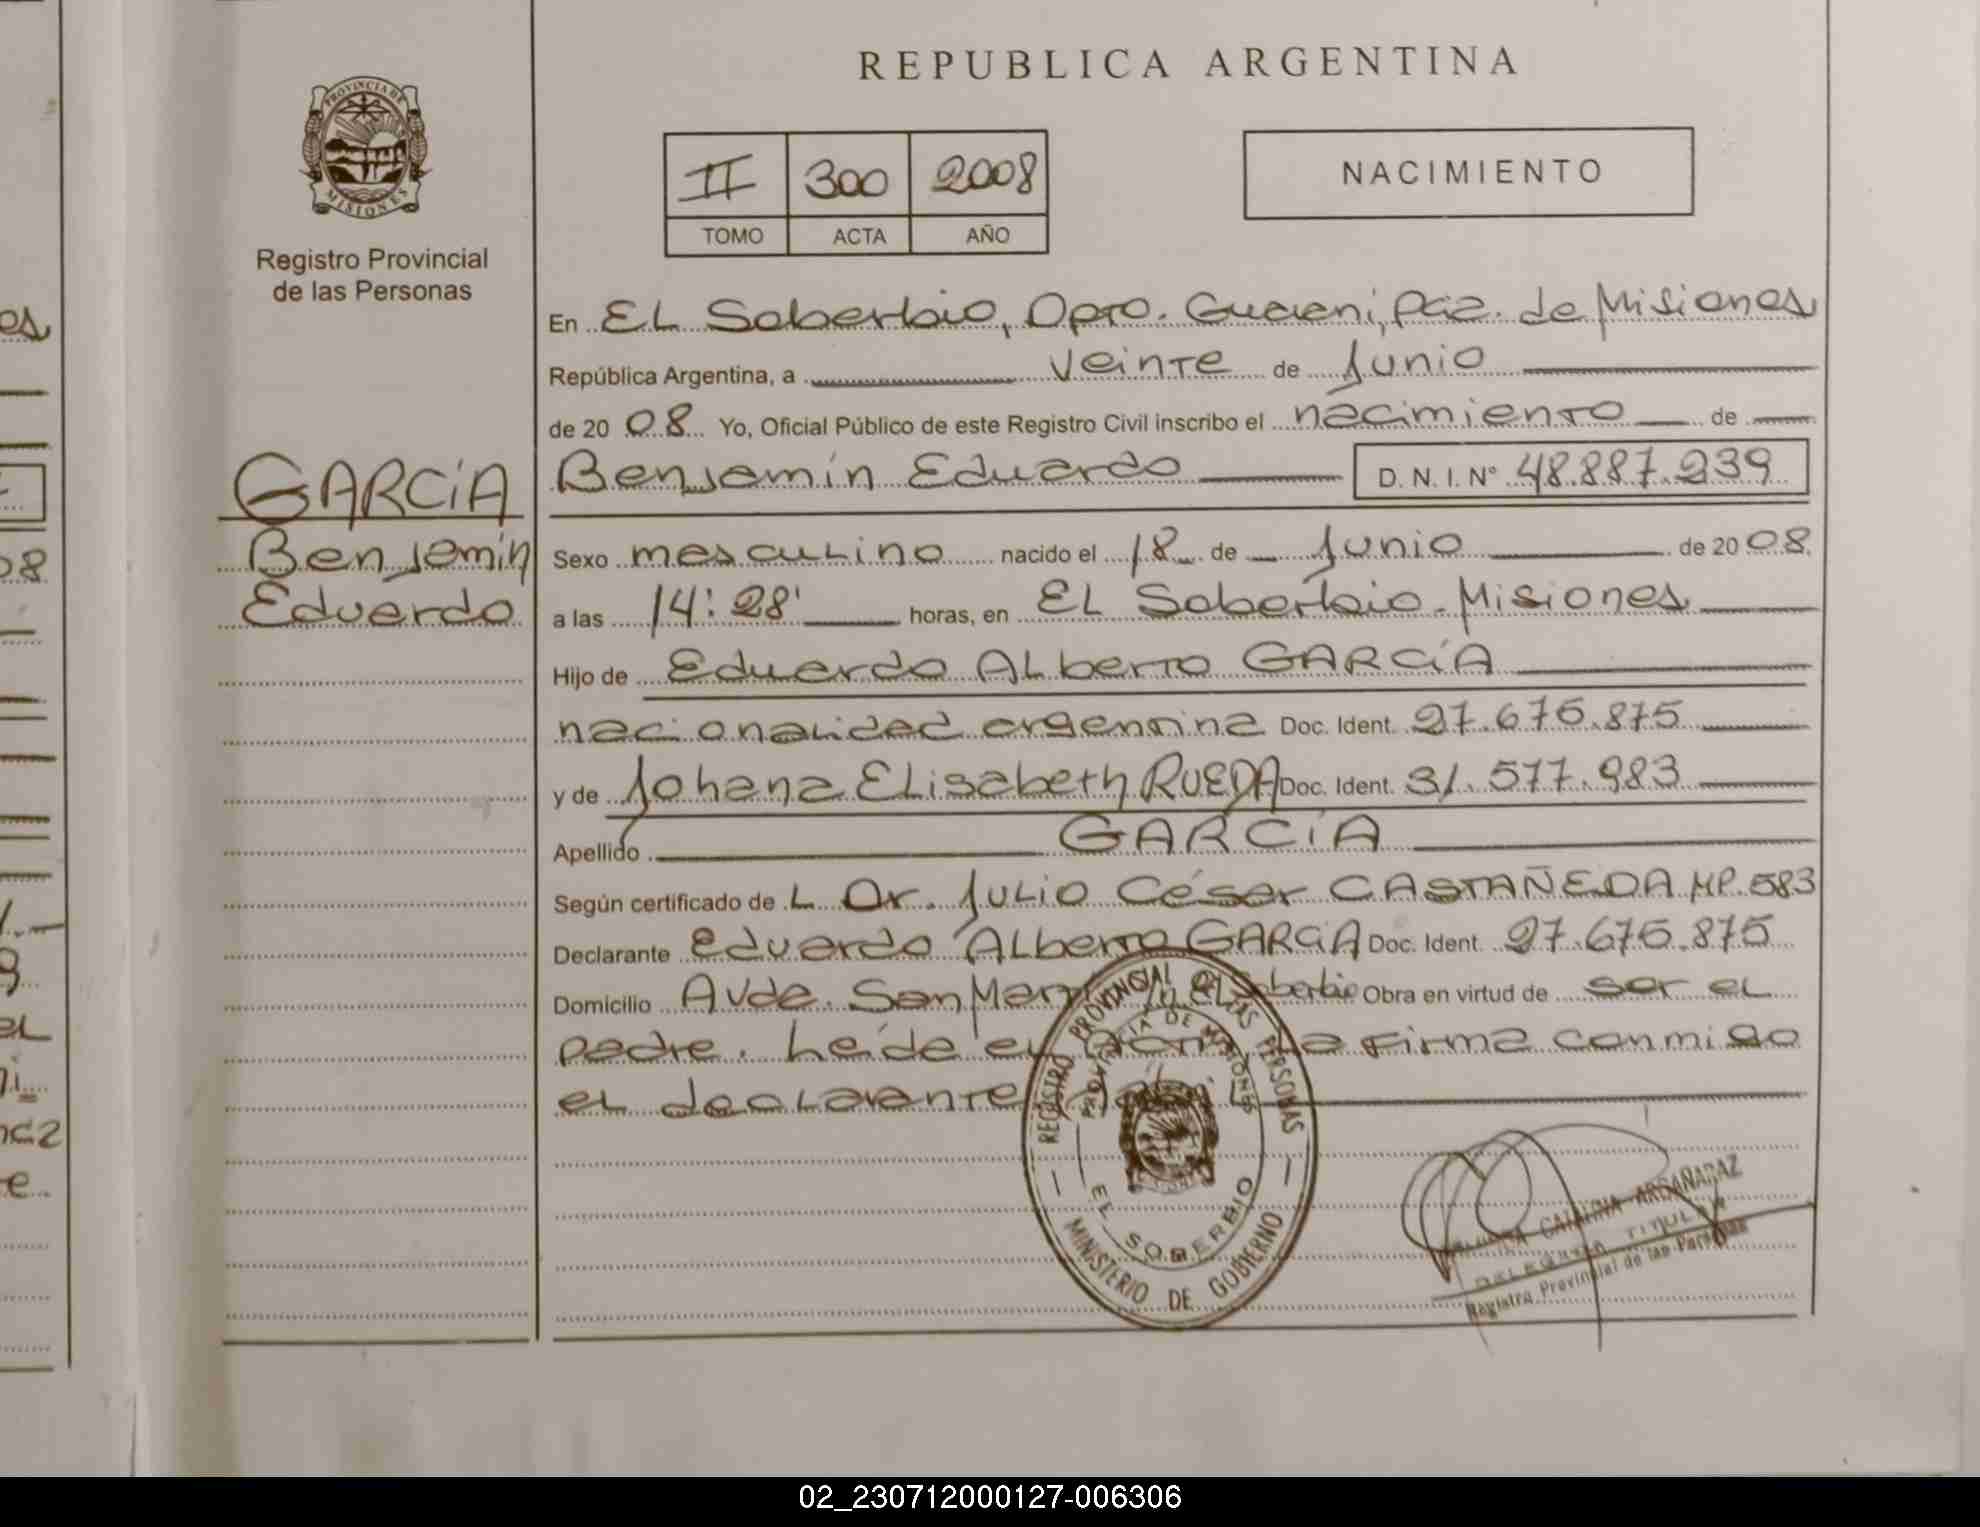 REPUBLICA ARGENTINA
PROVINCIA DE
MISIONES
Registro Provincial
de las Personas
II 300 2008
TOMO ACTA AÑO
NACIMIENTO
En El Soberbio, Dpto. Guarani, Pcia. de Misiones
República Argentina, a veinte de Junio
de 20 08 Yo, Oficial Público de este Registro Civil inscribo el nacimiento de
GARCÍA
Benjamín
Eduardo
Benjamín Eduardo D. N. I. Nº 48.887.239
Sexo masculino nacido el 18 de Junio de 20 08
a las 14:28' horas, en El Soberbio - Misiones
Hijo de Eduardo Alberto GARCÍA
nacionalidad argentina Doc. Ident. 27.675.875
y de Johana Elisabeth RUEDA Doc. Ident. 31.577.983
Apellido GARCÍA
Según certificado de L Dr. Julio César CASTAÑEDA MP. 583
Declarante Eduardo Alberto GARCÍA Doc. Ident. 27.675.875
Domicilio Avda. San Martín El Soberbio Obra en virtud de ser el
padre. Leída el acta, la firma conmigo
el declarante
REGISTRO PROVINCIAL DE LAS PERSONAS
PROVINCIA DE MISIONES
EL SOBERBIO
MINISTERIO DE GOBIERNO
CATALINA ARGAÑARAZ
DELEGADA TITULAR
Registro Provincial de las Personas
02_230712000127-006306